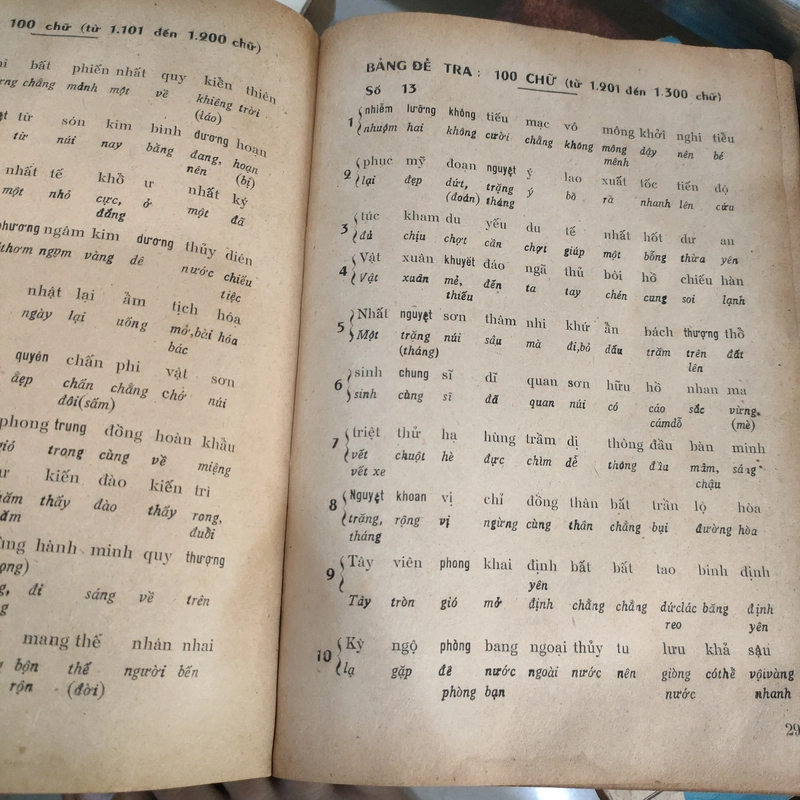 100 chữ (từ 1.101 đến 1.200 chữ)
bất phiến nhất quy kiển thiên
chẳng mảnh một về khiêng trời
(láo)
từ són kim bình đương hoạn
từ núi nay bằng đang, hoạn
nên (bị)
nhất tế khồ ư nhất ký
một nhỏ cực, ở một đã
đắng
phương ngâm kim dương thủy diên
thơm ngợm vàng dê nước chiếu
tiệc
nhật lại ầm tịch hóa
ngày lại uống mở,bài hóa
bác
quyên chấn phi vật sơn
đẹp chấn chẳng chở núi
đôi(sấm)
phong trung đồng hoàn khẩu
gió trong cùng về miệng
kiến đào kiến tri
thấy đào thấy rong,
đuổi
hành minh quy thượng
đi sáng về trên
mang thế nhân nhai
bộn thế người bến
rộn (đời)
BẢNG ĐỂ TRA : 100 CHỮ (từ 1.201 đến 1.300 chữ)
Số 13
1 nhiễm lưỡng không tiếu mạc vô mông khởi nghi tiểu
nhuộm hai không cười chẳng không mông dậy nên bé
mênh
2 phục mỹ đoạn nguyệt ý lao xuất tốc tiến độ
lại đẹp dứt, trặng ý bò rà nhanh lên cứu
(đoán) tháng
3 túc kham du yếu du tế nhất hốt dư an
đả chịu chợt cần chợt giáp một bỗng thừa yên
4 Vật xuân khuyết đáo ngã thủ bôi hồ chiếu hàn
Vật xuân mẻ, đến ta tay chén cung soi lạnh
thiếu
5 Nhất nguyệt sơn thâm nhi khứ ẩn bách thượng thổ
Một trăng núi sâu mà đi,bỏ dấu trăm trên đất
(tháng) lên
6 sinh chung sĩ dĩ quan sơn hữu hồ nhan ma
sinh cùng sĩ đã quan núi có cáo sắc vừng,
cámdỗ (mè)
7 triệt thử hạ hùng trầm dị thông đầu bàn minh
vết chuột hè đực chìm dễ thông đầu mâm, sáng
vết xe chậu
8 Nguyệt khoan vị chỉ đồng thân bất trần lộ hòa
trăng, rộng vị ngừng cùng thân chẳng bụi đường hòa
tháng
9 Tây viên phong khai định bất bất tao bình định
yên
Tây tròn gió mở định chẳng chẳng dứclác bằng định
reo yên
10 Kỳ ngộ phòng bang ngoại thủy tu lưu khả sậu
lạ gặp đề nước ngoài nước nên giòng cóthể vộivàng
phòng bạn nước nhanh
29